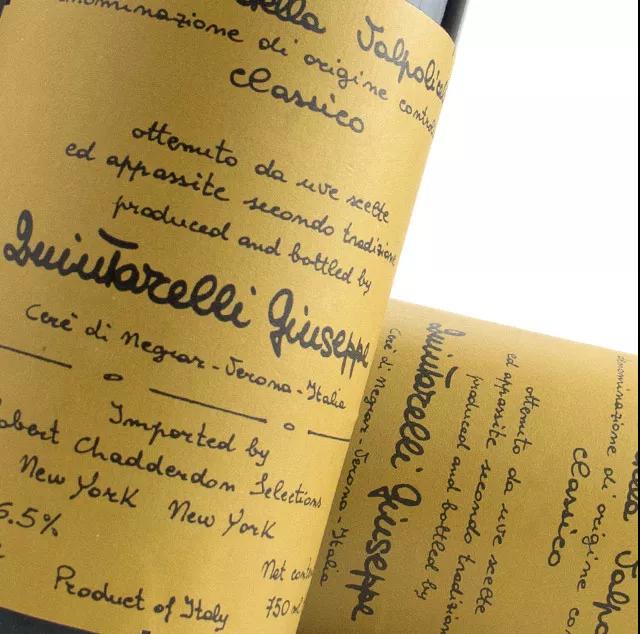 della Valpolicel
denominazione di origine contro
Classico
ottenuto da uve scelte
ed appassite secondo tradizione
produced and bottled by
Quintarelli Giuseppe
Cerè di Negrar - Verona - Italia
Imported by
obert Chadderdon Selections
New York New York
6.5%
Net cont
Product of Italy 750 ml
denominazione di origine co
Classico
ottenuto da uve scelte
ed appassite secondo tradizion
produced and bottled by
Quintarelli Giuseppe
Cerè di Negrar - Verona - Italia